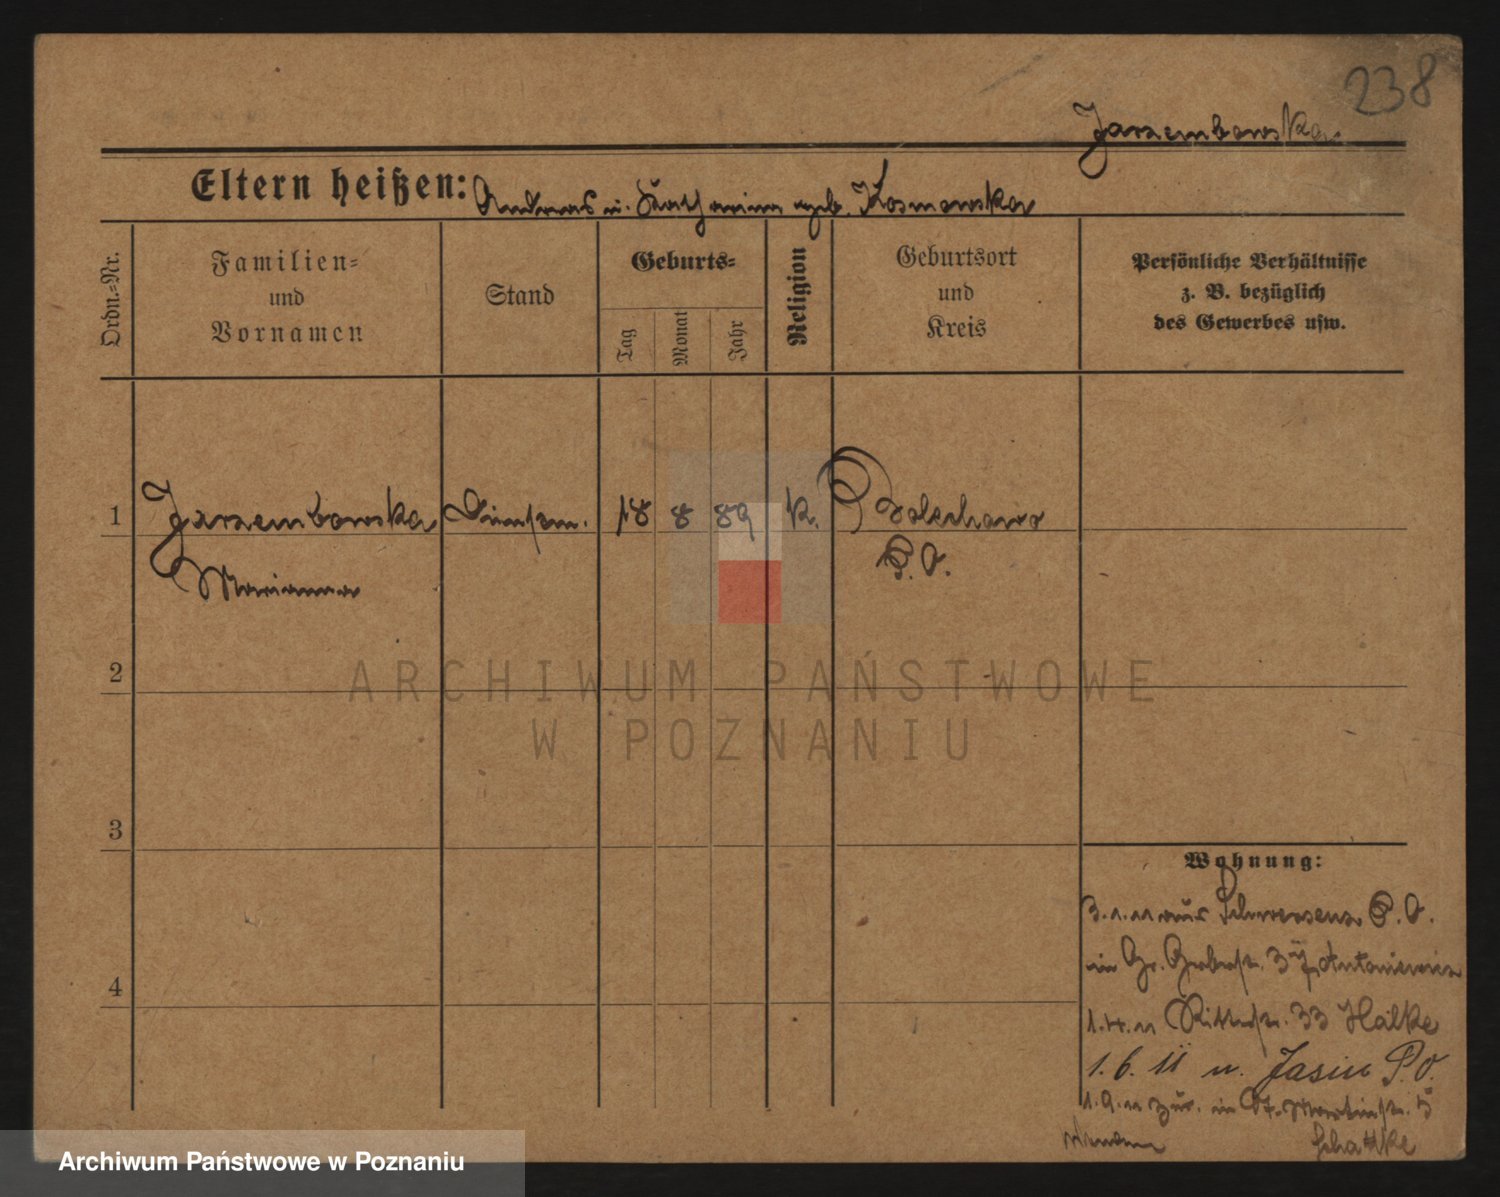 238
Jarzembowska
Eltern heißen: Andreas u. Katharina geb. Kosmowska
Ordn.=Nr.
Familien=
und
Vornamen
Stand
Geburts=
Tag
Monat
Jahr
Religion
Geburtsort
und
Kreis
Persönliche Verhältnisse
z. B. bezüglich
des Gewerbes usw.
1 Jarzembowska 18 8 89 k.
P. O.
Marianna
2
ARCHIWUM PAŃSTWOWE
W POZNANIU
3
4
Wohnung:
3.1.11 aus Schwersenz P. O.
in Gr. Gerberstr. 37
1.4.11 Ritterstr. 33 Halke
1.6.11 n. Jasin P.O.
1.9.11 zur. in St. Martinstr. 5
Schattke
Archiwum Państwowe w Poznaniu